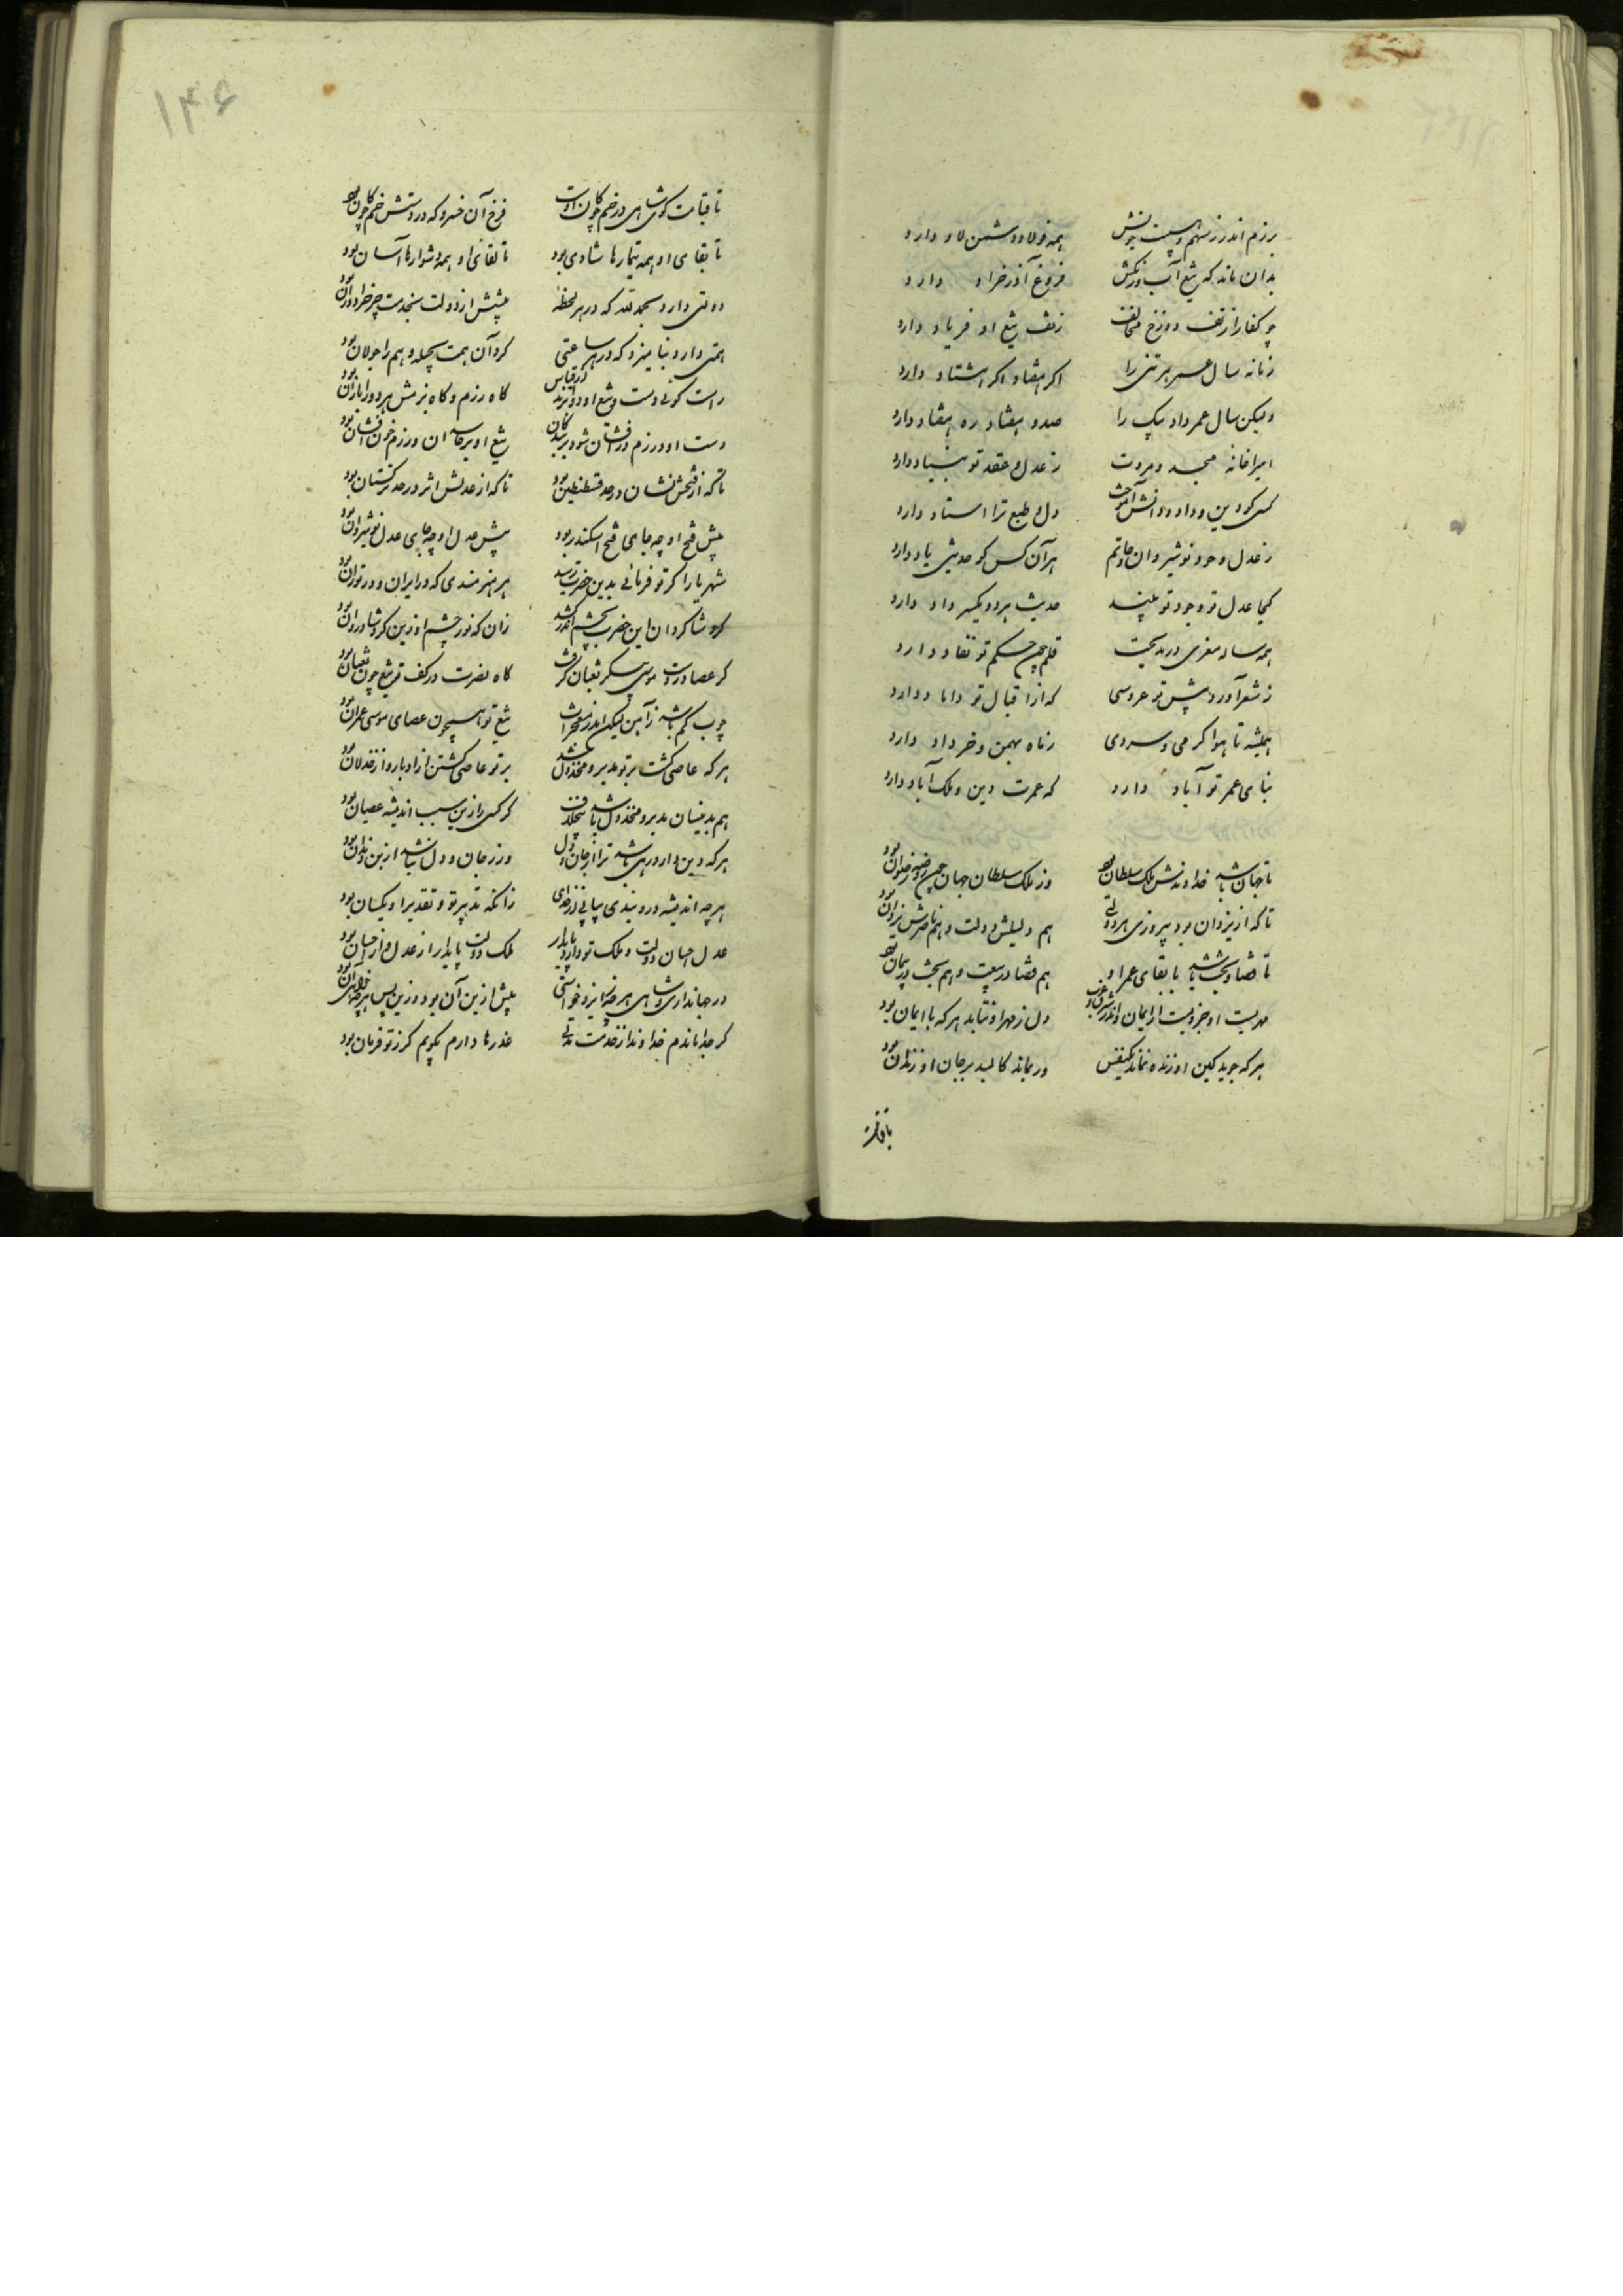 برزم اندر ز سهم و هیبت خویش همه فولاد دشمن لاد دارد
بدان ماند که تیغ آب رنگش فروغ آذر خراد دارد
چو کفار از تف دوزخ مخالف ز تف تیغ او فریاد دارد
زمانه سال عمر هر تنی را اکر هفتاد اکر هشتاد دارد
ولیکن سال عمر داد بیک را صد و هفتاد ره هفتاد دارد
امیرا خانه مجد و مروت ز عدل و عقد تو بنیاد دارد
کسی کو دین و داد و دانش آموخت دل و طبع ترا استاد دارد
ز عدل و جود نوشیروان و حاتم هر آن کس کو حدیثی یاد دارد
کجا عدل تو و جود تو بیند حدیث هر دو یکسر داد دارد
همه ساله معزی در مدیحت قلم چون حکم تو نفاد دارد
ز شعر آورد پیش تو عروسی که از اقبال تو داماد دارد
همیشه تا هوا کرمی و سردی ز ماه بهمن و خرداد دارد
بنای عمر تو آباد دارد که عمرت دین و ملک آباد دارد
تا جهان باشد خداوندش ملک سلطان بود وز ملک سلطان جهان چون روضه رضوان بود
تا که از یزدان بود پیروزی هر دولتی هم دلیلش دولت و هم ناصرش یزدان بود
تا قضا و بخشش باشد با بقای عمر او هم قضا در بیعت و هم بخت در پیمان بود
مهر بیعت او جزوی است از ایمان اندر شرق و غرب دل ز مهر او نتابد هر که با ایمان بود
هر که جوید کین او زنده نماند یکنفس ور بماند کالبد بر جان او زندان بود
تا قیامت
۱۴۶
تا قیامت کوی شاهی در خم چوکان اوست فرخ آن خسرو که در دستش خم چوکان بود
تا بقای او همه تیمارها شادی بود تا لقای او همه دشوارها آسان بود
دولتی دارد بحمدلله که در هر لحظه پیشش از دولت بخدمت چرخ را دوران بود
همتی دارد بنامیزد که در هر ساعتی کرد آن همت بجمله وهم را جولان بود
راست کوئی دست و تیغ او دو ابرند از قیاس کاه رزم و کاه بزمش هر دو را باران بود
دست او در بزم درافشان شود بر بندکان تیغ او بر حاسدان در رزم خون افشان بود
تا که از فتحش نشان در حد قسطنطین بود تا که از عدلش اثر در حد ترکستان بود
پیش فتح او چه جای فتح اسکندر بود پیش عدل او چه جای عدل نوشیروان بود
شهریارا کر تو فرمانی بدین حضرت رسید هر هنرمندی که در ایران و در توران بود
کرد شاکردان این حضرت بچشم اندر کشد زان که نور چشم او زین کرد شادروان بود
کر عصا در دست موسی پیکر ثعبان کرفت کاه نصرت در کف تو تیغ چون ثعبان بود
چوب کم باشد ز آهن لیکن اندر معجزات تیغ تو همچون عصای موسی عمران بود
هر که عاصی کشت بر تو مدبر و مخذول شد بر تو عاصی کشتن از ادبار و از خذلان بود
هم بدینسان مدبر و مخذول باشد بیخلاف کر کسی را زین سبب اندیشه عصیان بود
هر که دین دارد رهی باشد ترا از جان و دل ور ز جان و دل نباشد از بن دندان بود
هر چه اندیشه درو بندی بیابی از خدای زانکه تدبیر تو و تقدیر او یکسان بود
عدل و احسان دولت و ملک تو دارد پایدار ملک و دولت پایدار از عدل و از احسان بود
در جهانداری و شاهی هر چه از ایزد خواستی پیش ازین آن بود و زین پس هر چه خواهی آن بود
کر جدا ماندم خداوندا ز خدمت مدتی عذرها دارم بکویم کر ز تو فرمان بود